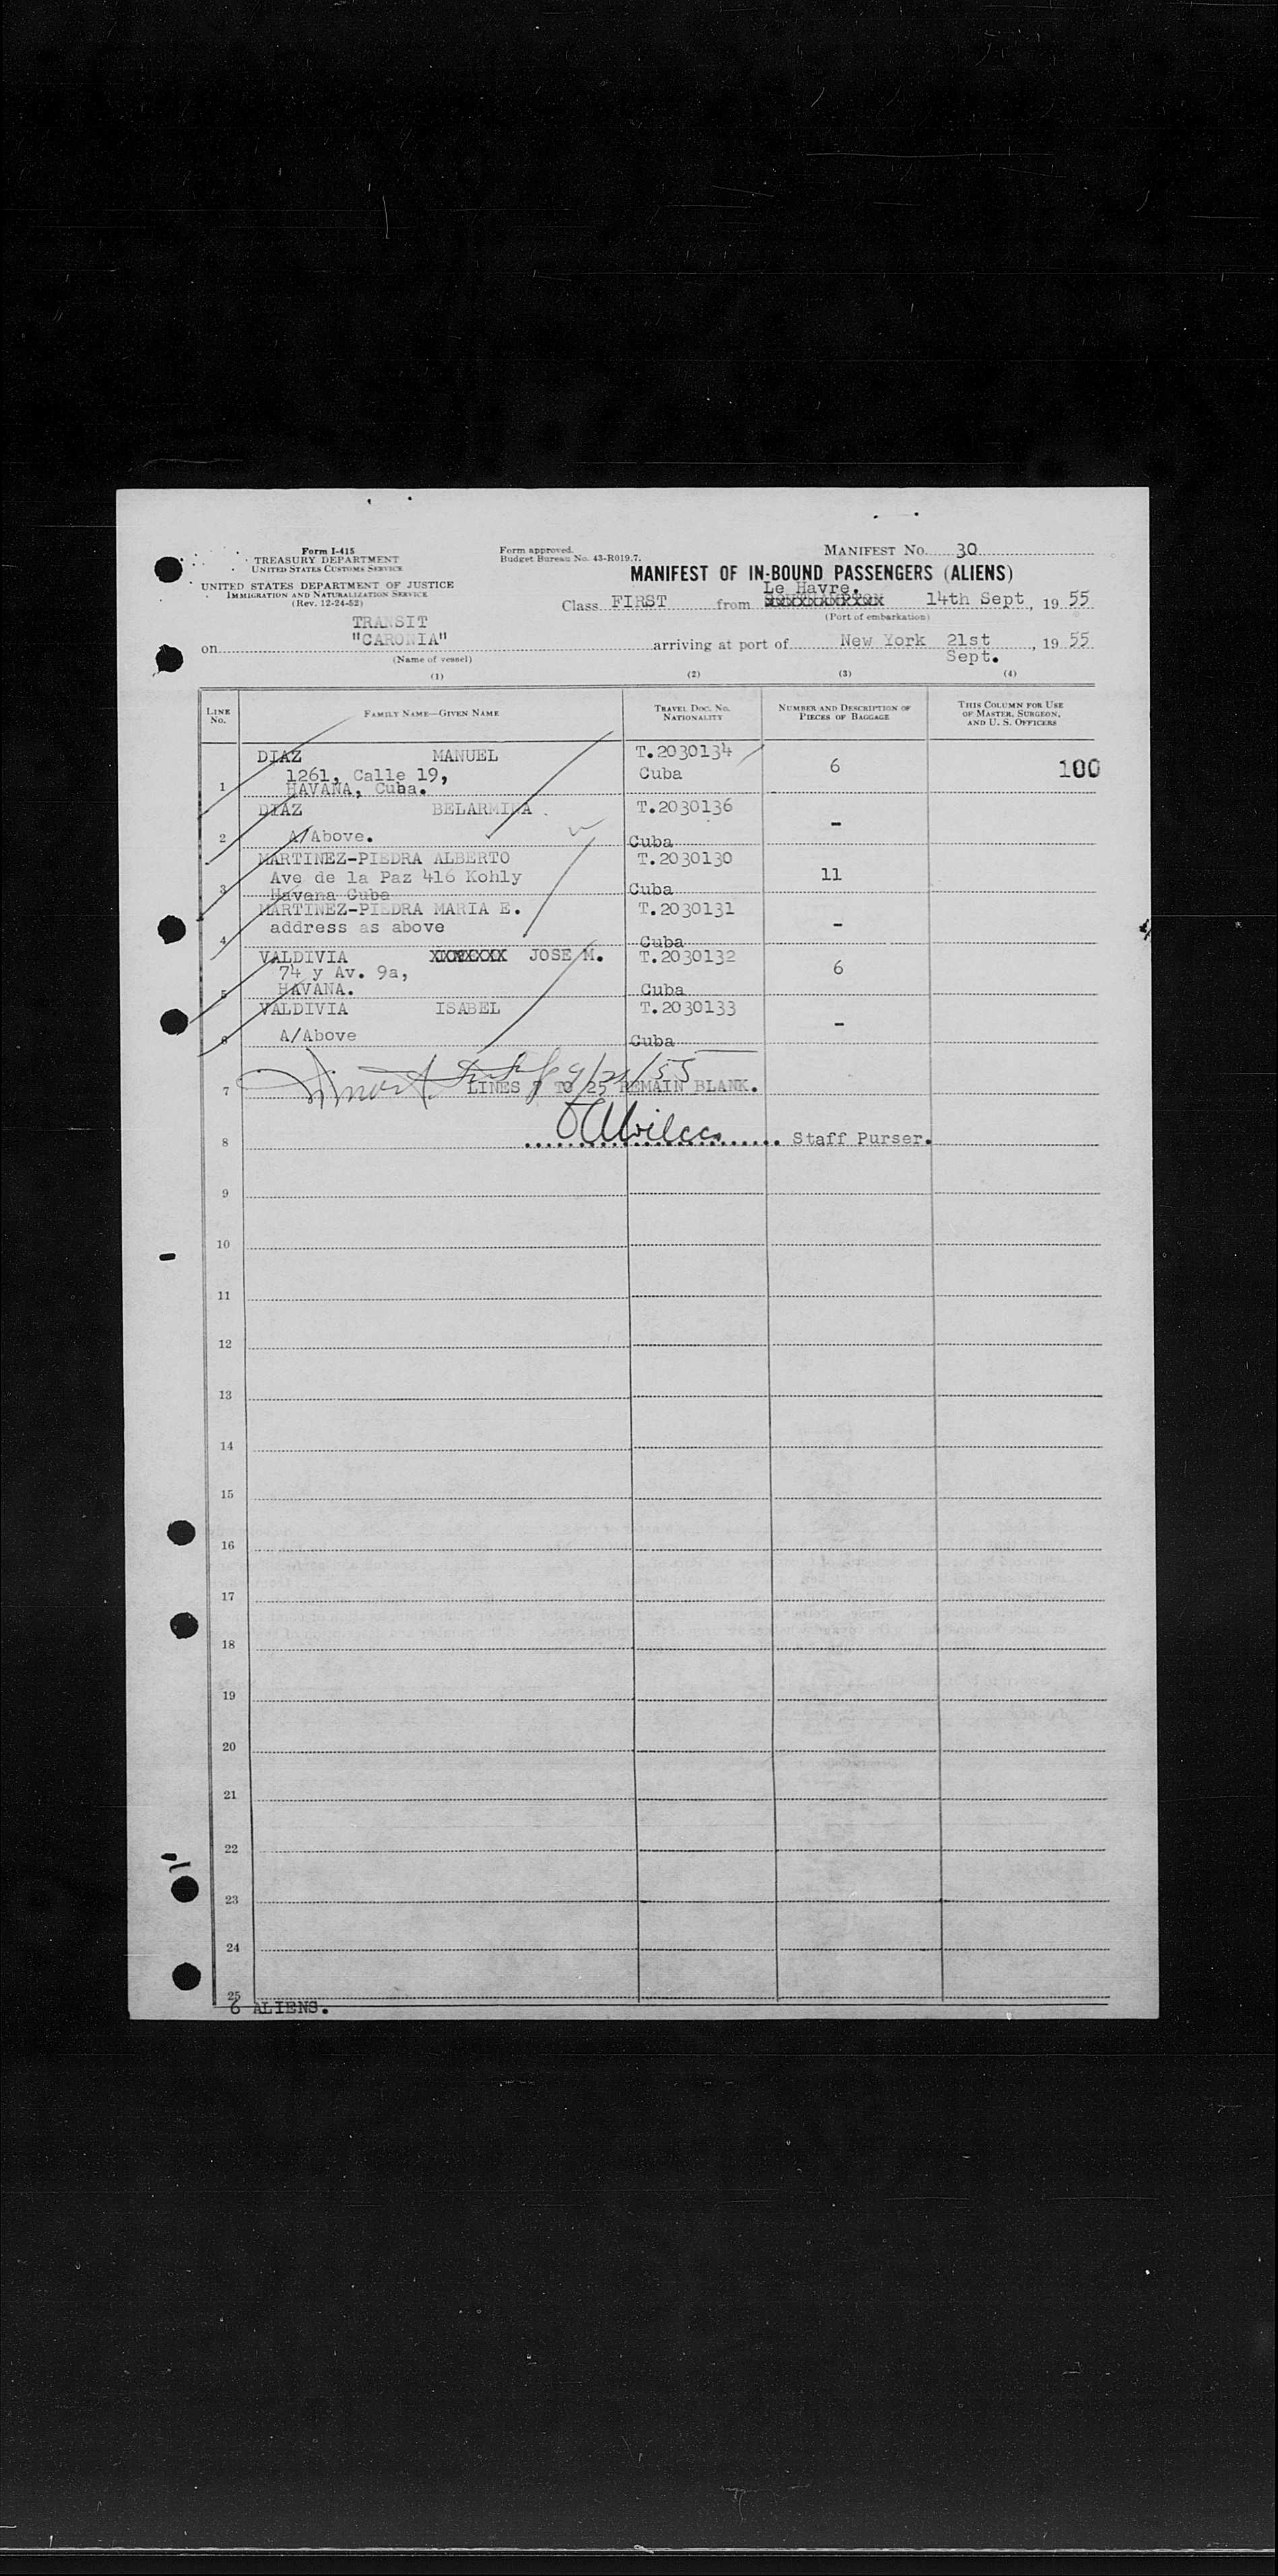 Form I-415
TREASURY DEPARTMENT
UNITED STATES CUSTOMS SERVICE
UNITED STATES DEPARTMENT OF JUSTICE
IMMIGRATION AND NATURALIZATION SERVICE
(Rev. 12-24-52)
Form approved.
Budget Bureau No. 43-R019.7.
MANIFEST No. 30
MANIFEST OF IN-BOUND PASSENGERS (ALIENS)
Le Havre.
Class FIRST from XXXXXXXXXXX 14th Sept, 19 55
(Port of embarkation)
TRANSIT
on "CARONIA" arriving at port of New York 21st Sept., 19 55
(Name of vessel)
(1) (2) (3) (4)
LINE No. FAMILY NAME—GIVEN NAME TRAVEL DOC. NO. NATIONALITY NUMBER AND DESCRIPTION OF PIECES OF BAGGAGE THIS COLUMN FOR USE OF MASTER, SURGEON, AND U. S. OFFICERS
DIAZ MANUEL T.2030134
1261, Calle 19, Cuba 6 100
1 HAVANA, Cuba.
DIAZ BELARMINA . T.2030136
2 A/Above. Cuba -
MARTINEZ-PIEDRA ALBERTO T.2030130
Ave de la Paz 416 Kohly 11
3 Havana Cuba Cuba
MARTINEZ-PIEDRA MARIA E. T.2030131
address as above -
4 Cuba
VALDIVIA XXXXXXX JOSE M. T.2030132
74 y Av. 9a, 6
5 HAVANA. Cuba
VALDIVIA ISABEL T.2030133
6 A/Above Cuba -
9/21/55
7 LINES 7 TO 25 REMAIN BLANK.
8 Staff Purser.
9
10
11
12
13
14
15
16
17
18
19
20
21
22
23
24
25
6 ALIENS.